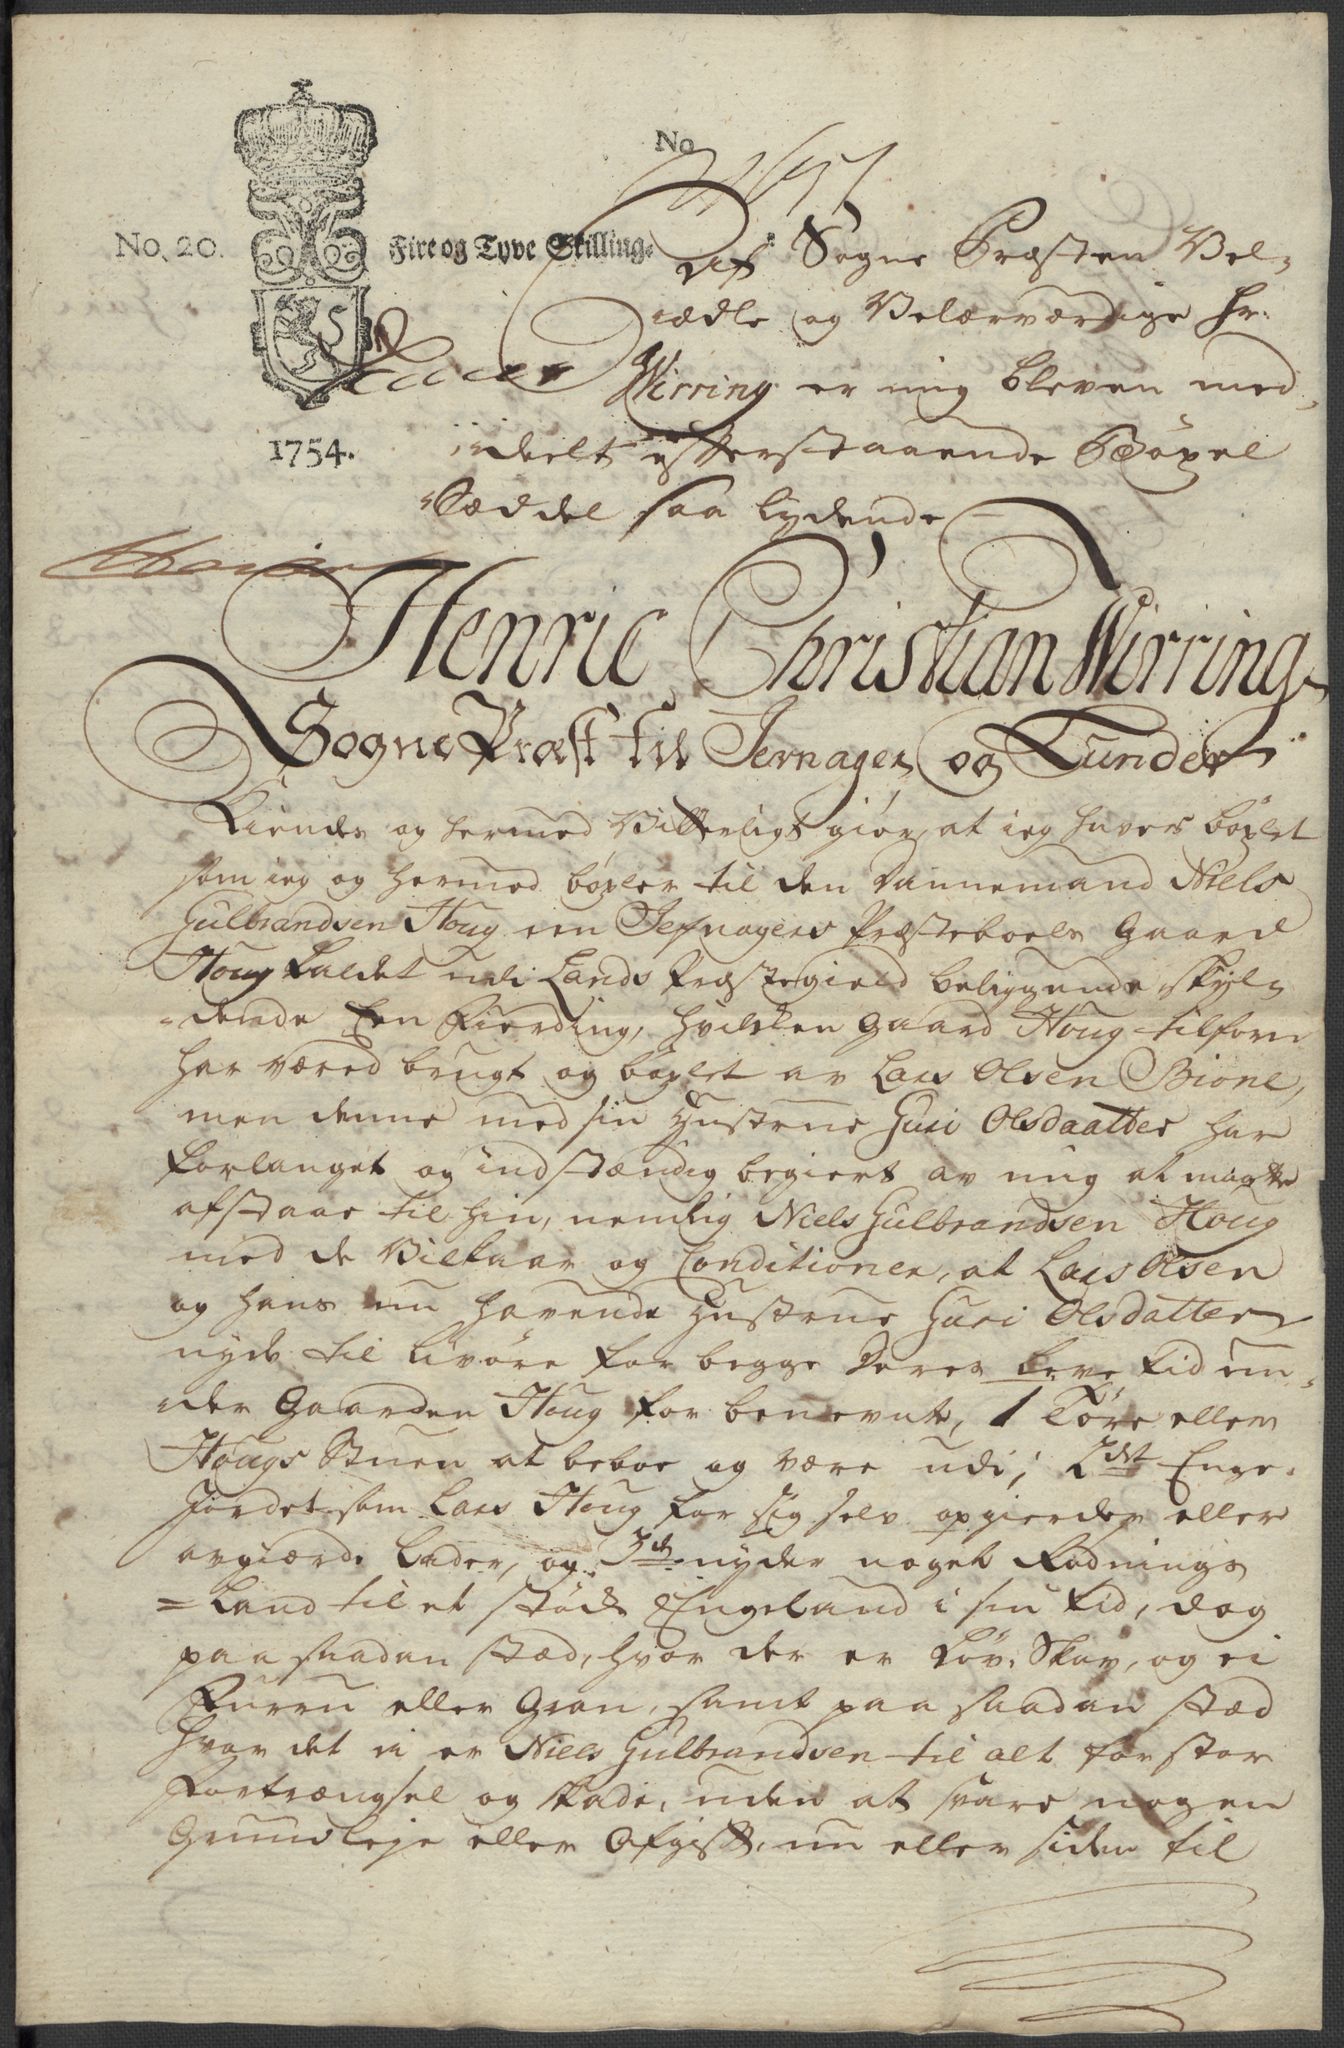 No
No. 20.
Fire og Tyve Skilling.
1754.
Af Sogne Præsten Vel-
ædle og Velærværdige Hr:
Wirring er mig bleven med
deelt efterstaaende Böxel
Sæddel saa lydende
Henric Christian Wirring
Sogne Præst til Jevnager og Lunder
Kiendes og hermed Vitterligt giör, at ieg haver böxlet
som ieg og hermed böxler til den Dannemand Niels
Gulbrandsen Houg een Jefnagers Præsteboels Gaard
Houg kaldet udi Lands Præstegield beliggende skyl-
dende Een Fierding, hvilken Gaard Houg tilforn
har været brugt og böxlet av Lars Olsen Bione,
men denne med sin Hustrue Guri Olsdaatter har
forlanget og indstændig begiert av mig at maatte
afstaae til hin, nemlig Niels Gulbrandsen Houg
med de Vilkaar og Conditioner, at Lars Olsen
og hans nu havende Hustrue Guri Olsdatter
nyde til Livöre for begge Deres Leve Tid un-
der Gaarden Houg for benevnte, 1 Töre ellem
Hougs Stuen at beboe og være udi; 2det Enge-
Jordet som Lars Houg for sig selv opgierder eller
avgiærde lader, og 3die nyder noget Rodnings
=Land til et støcke Engeland i sin Tid, dog
paa saadan stæd, hvor der er Löv-Skov, og ei
Furru eller Gran, samt paa saadan stæd
hvor det ei er Niels Gulbrandsen til alt for stor
Fortrængsel og skade, uden at svare nogen
Grundleje eller Afgift, nu eller siden til